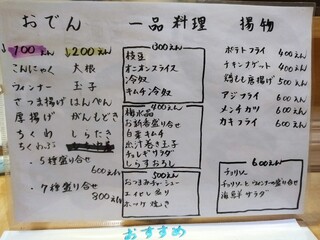 おでん
100えん
こんにゃく
ウィンナー
さつま揚げ
厚揚げ
ちくわ
ちくわぶ
200えん
大根
玉子
はんぺん
がんもどき
しらたき
・5種盛り合せ
600えん
・7種盛り合せ
800えん
一品料理
300えん
枝豆
オニオンスライス
冷奴
キムチ冷奴
400えん
梅水晶
お新香盛り合せ
白菜キムチ
出汁巻き玉子
チョレギサラダ
しらすおろし
500えん
おつまみチャーシュー
エイヒレ炙り
ホッケ焼き
揚物
ポテトフライ 400えん
チキンナゲット 400えん
鶏もも唐揚げ 500えん
アジフライ 600えん
メンチカツ 600えん
カキフライ 600えん
600えん
チョリソー
チョリソーとウィンナーの盛り合せ
海鮮サラダ
おすすめ